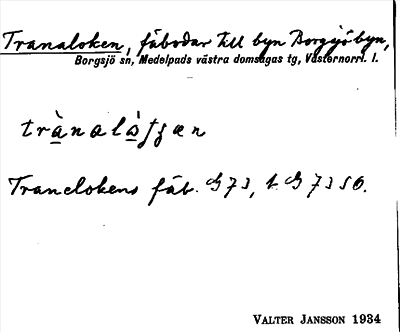 Tranaloken, fäbodar till byn Borgsjöbyn,
Borgsjö sn, Medelpads västra domsagas tg, Västernorrl. l.
trànalàʃʃæn
Tranelokens fäb. G 73, t. G 73 S6.
VALTER JANSSON 1934